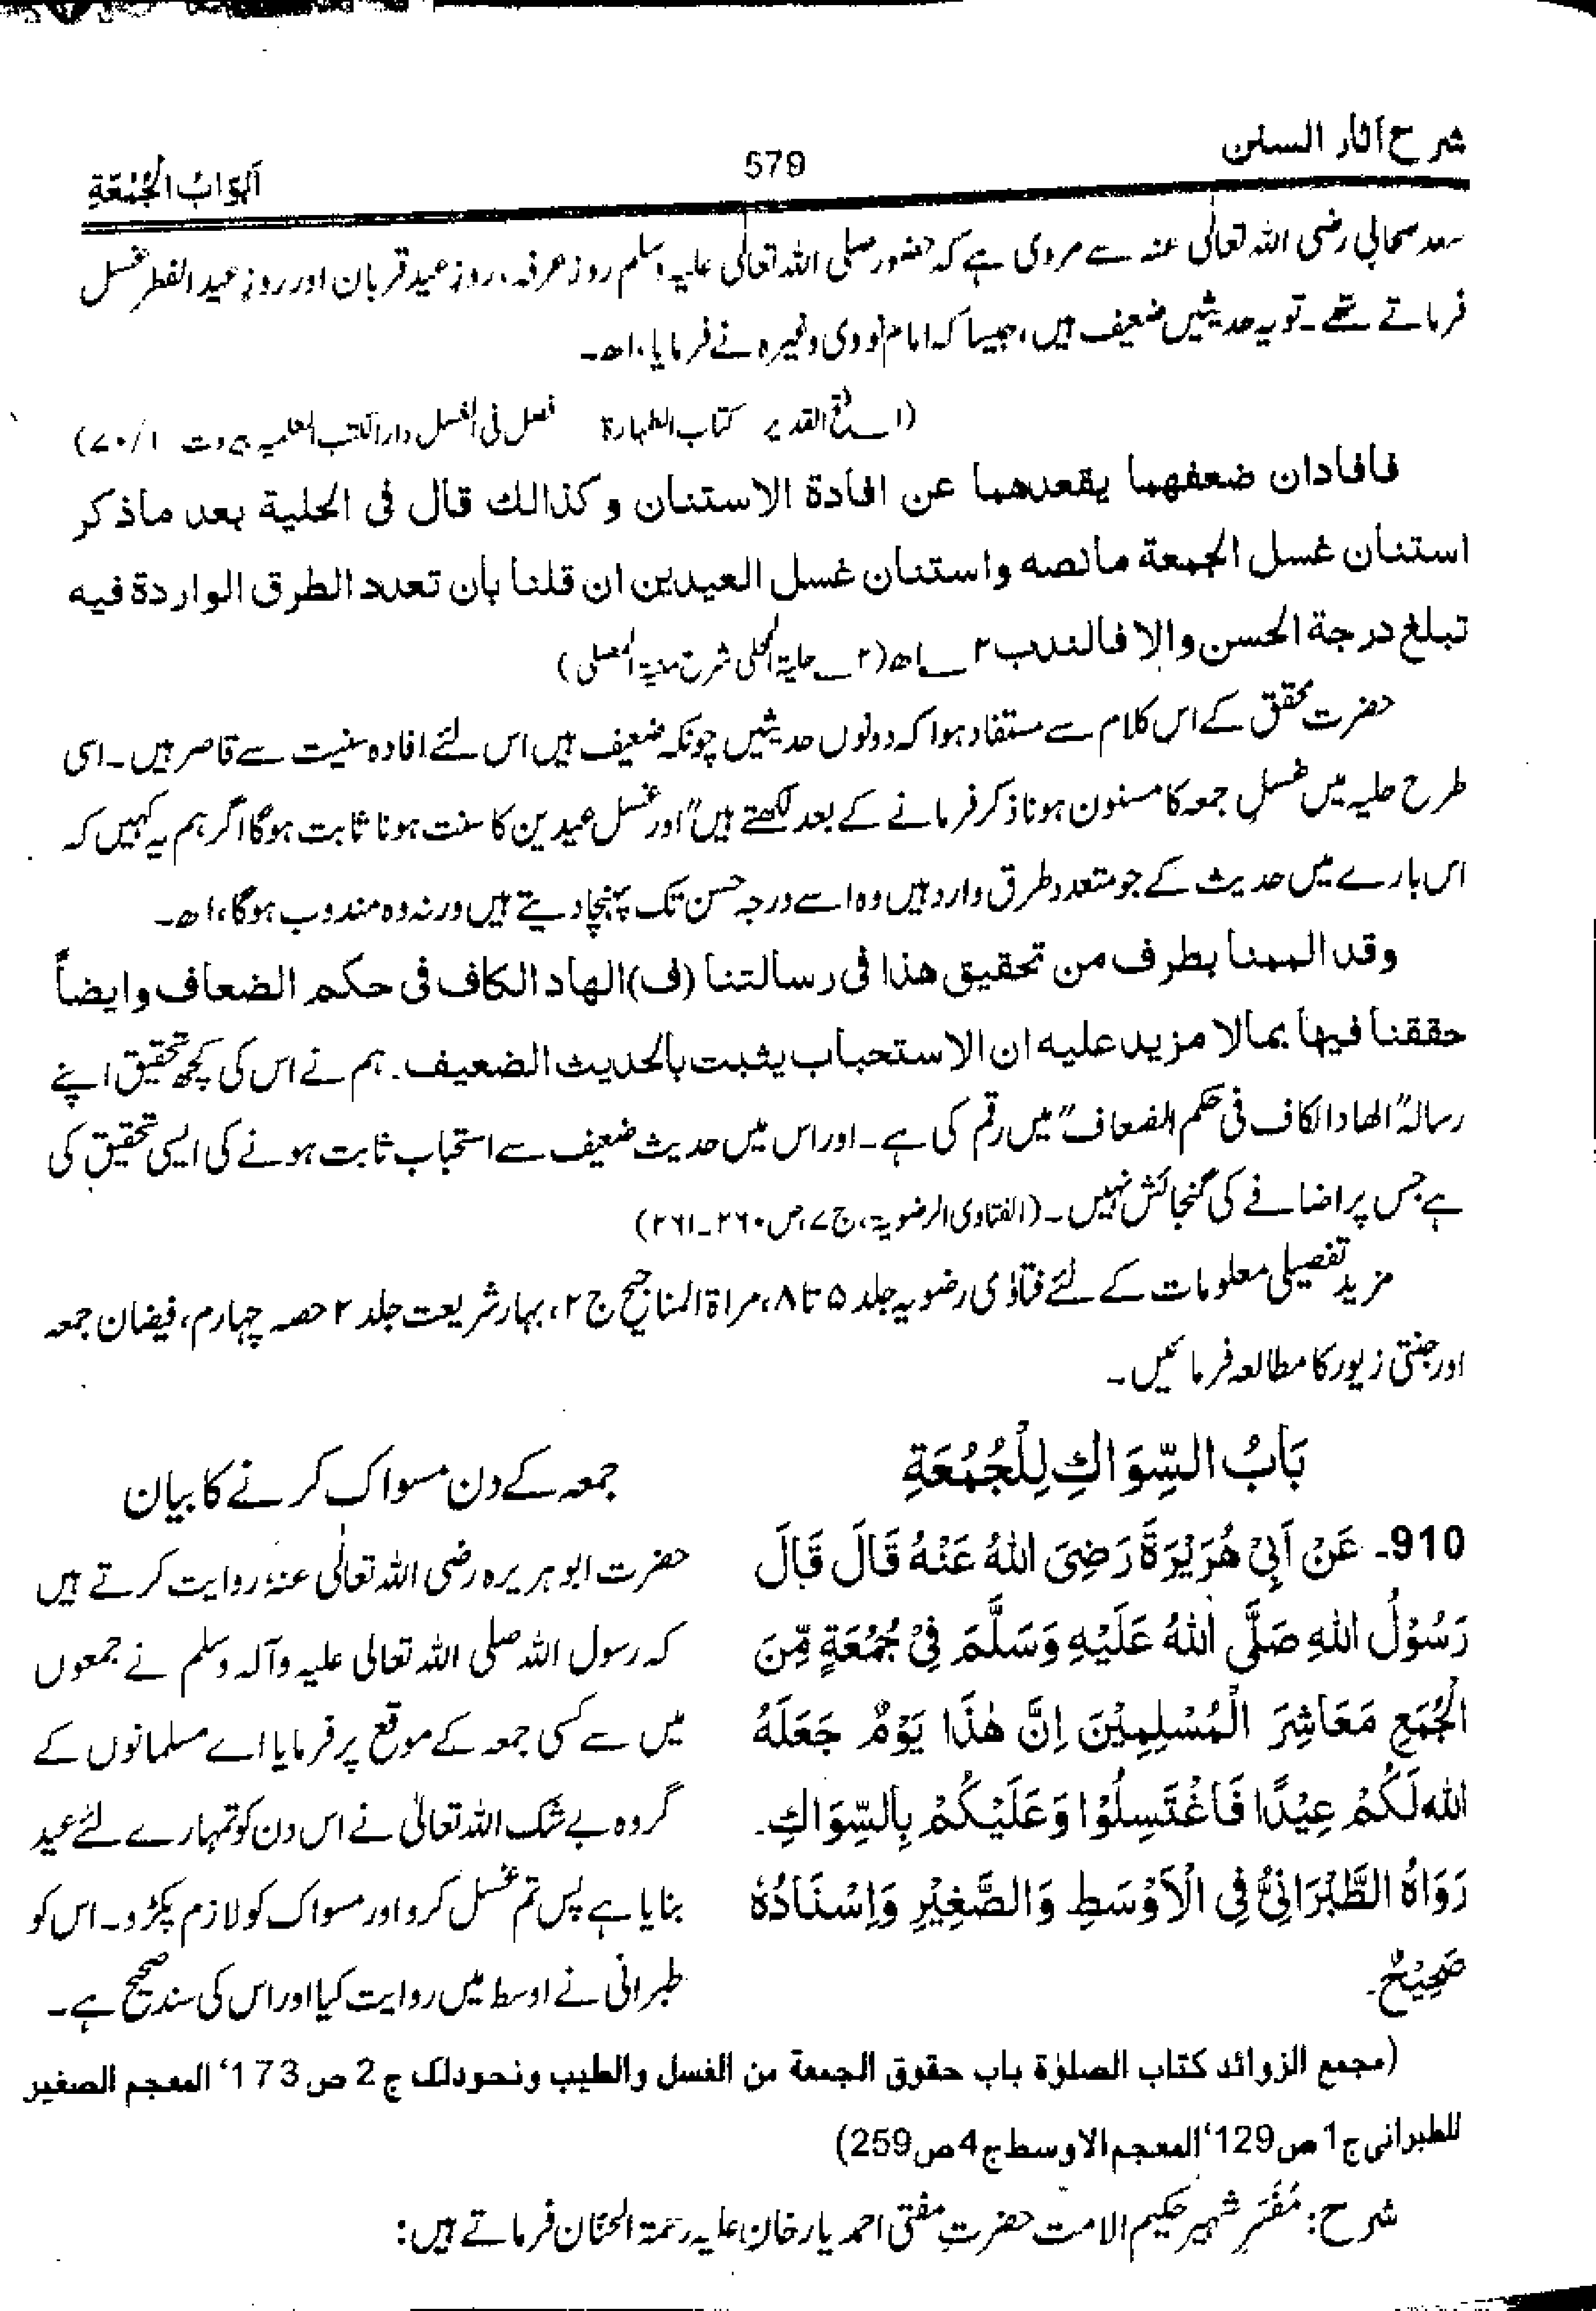 شرح آثار السنن
579
اَبْوَابُ الْجُمُعَةِ
سعد صحابی رضی اللہ تعالٰی عنہ سے مروی ہے کہ حضور صلی اللہ تعالٰی علیہ وسلم روز عرفہ، روز عید قربان اور روزِ عید الفطر غسل
فرماتے تھے۔ تو یہ حدیثیں ضعیف ہیں، جیسا کہ امام نووی وغیرہ نے فرمایا، اھ۔
(۱؎ فتح القدیر کتاب الطہارۃ فصل فی الغسل دار الکتب العلمیہ بیروت ۱/۷۰)
فافادان ضعفهما يقعدهما عن افادة الاستنان وكذالك قال فی الحلية بعد ماذكر
استنان غسل الجمعة مانصه واستنان غسل العيدين ان قلنا بأن تعدد الطرق الواردة فيه
تبلغ درجة الحسن والا فالندب ۲؎ اھ (۲؎ حلیۃ المحلی شرح منیۃ المصلی)
حضرت محقق کے اس کلام سے مستفاد ہوا کہ دونوں حدیثیں چونکہ ضعیف ہیں اس لئے افادہ سنیت سے قاصر ہیں۔ اسی
طرح حلیہ میں غسلِ جمعہ کا مسنون ہونا ذکر فرمانے کے بعد لکھتے ہیں "اور غسل عیدین کا سنت ہونا ثابت ہوگا اگر ہم یہ کہیں کہ
اس بارے میں حدیث کے جو متعدد طرق وارد ہیں وہ اسے درجہ حسن تک پہنچا دیتے ہیں ورنہ وہ مندوب ہوگا، اھ۔
وقد الممنا بطرف من تحقيق هذا فی رسالتنا (ف) الهاد الكاف فی حكم الضعاف وايضاً
حققنا فيها بمالا مزيد عليه ان الاستحباب يثبت بالحديث الضعيف۔ ہم نے اس کی کچھ تحقیق اپنے
رسالہ "الھاد الکاف فی حکم الضعاف" میں رقم کی ہے۔ اور اس میں حدیث ضعیف سے استحباب ثابت ہونے کی ایسی تحقیق کی
ہے جس پر اضافے کی گنجائش نہیں۔ (الفتاوی الرضویۃ، ج ۷، ص ۲۶۰۔۲۶۱)
مزید تفصیلی معلومات کے لئے فتاوٰی رضویہ جلد ۵ تا ۸، مراۃ المناجیح ج ۲، بہار شریعت جلد ۲ حصہ چہارم، فیضان جمعہ
اور جنتی زیور کا مطالعہ فرمائیں۔
بَابُ السِّوَاكِ لِلْجُمُعَةِ
910۔ عَنْ اَبِیْ هُرَيْرَةَ رَضِیَ اللهُ عَنْهُ قَالَ قَالَ
رَسُوْلُ اللهِ صَلَّی اللهُ عَلَيْهِ وَسَلَّمَ فِیْ جُمُعَةٍ مِّنَ
الْجُمَعِ مَعَاشِرَ الْمُسْلِمِيْنَ اِنَّ هٰذَا يَوْمٌ جَعَلَهُ
الله لَكُمْ عِيْدًا فَاغْتَسِلُوْا وَعَلَيْكُمْ بِالسِّوَاكِ۔
رَوَاهُ الطَّبْرَانِیُّ فِی الْاَوْسَطِ وَالصَّغِيْرِ وَاِسْنَادُهٗ
صَحِيْحٌ۔
جمعہ کے دن مسواک کرنے کا بیان
حضرت ابو ہریرہ رضی اللہ تعالٰی عنہ روایت کرتے ہیں
کہ رسول اللہ صلی اللہ تعالی علیہ وآلہ وسلم نے جمعوں
میں سے کسی جمعہ کے موقع پر فرمایا اے مسلمانوں کے
گروہ بے شک اللہ تعالیٰ نے اس دن کو تمہارے لئے عید
بنایا ہے پس تم غسل کرو اور مسواک کو لازم پکڑو۔ اس کو
طبرانی نے اوسط میں روایت کیا اور اس کی سند صحیح ہے۔
(مجمع الزوائد كتاب الصلوٰة باب حقوق الجمعة من الغسل والطيب ونحوذلك ج 2 ص 173، المعجم الصغير
للطبرانی ج 1 ص 129، المعجم الاوسط ج 4 ص 259)
شرح: مُفَسِّرِ شہیر حکیم الامت حضرتِ مفتی احمد یار خان علیہ رحمۃ الحنان فرماتے ہیں: